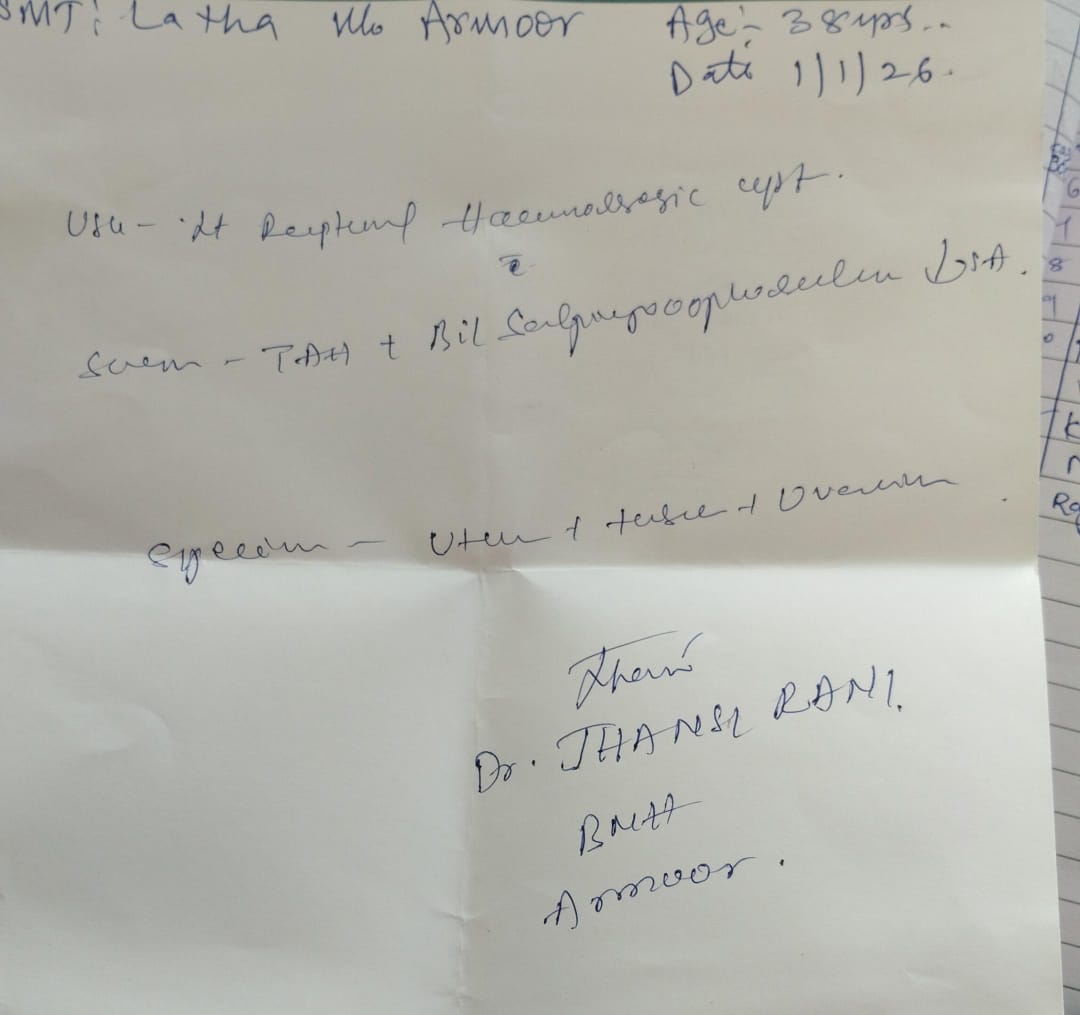 SMT: Latha Mlo Armoor Age:- 38 yrs..
Date 1/1/26.
USG - Lt Ruptured Haemorrhagic cyst.
c̄
- TAH + Bil Salpingoophorectomy ↓ SA.
Specimen - Uterus + tubes + Ovaries
Dr. JHANSI RANI.
BMH
Armoor.